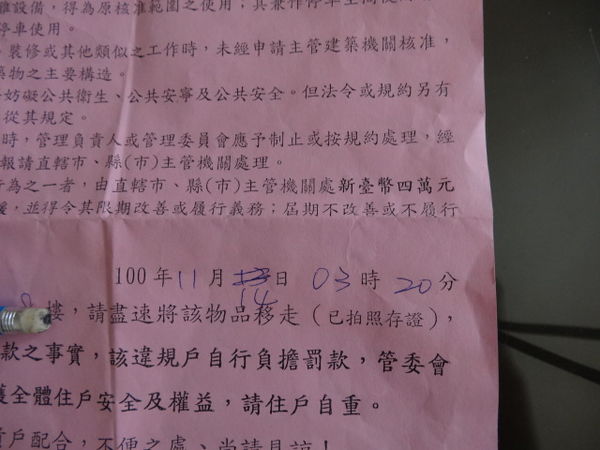 雜設備，得為原核准範圍之使用；其兼作停車空間使用
停車使用。
、裝修或其他類似之工作時，未經申請主管建築機關核准，
築物之主要構造。
妨礙公共衛生、公共安寧及公共安全。但法令或規約另有
從其規定。
時，管理負責人或管理委員會應予制止或按規約處理，經
報請直轄市、縣(市)主管機關處理。
行為之一者，由直轄市、縣(市)主管機關處新臺幣四萬元
，並得令其限期改善或履行義務；屆期不改善或不履行
100年11月14日 03時20分
樓，請盡速將該物品移走（已拍照存證），
款之事實，該違規戶自行負擔罰款，管委會
護全體住戶安全及權益，請住戶自重。
戶配合，不便之處、尚請見諒！